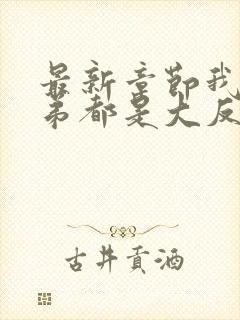 最新章節我
弟都是大反
古井貢酒